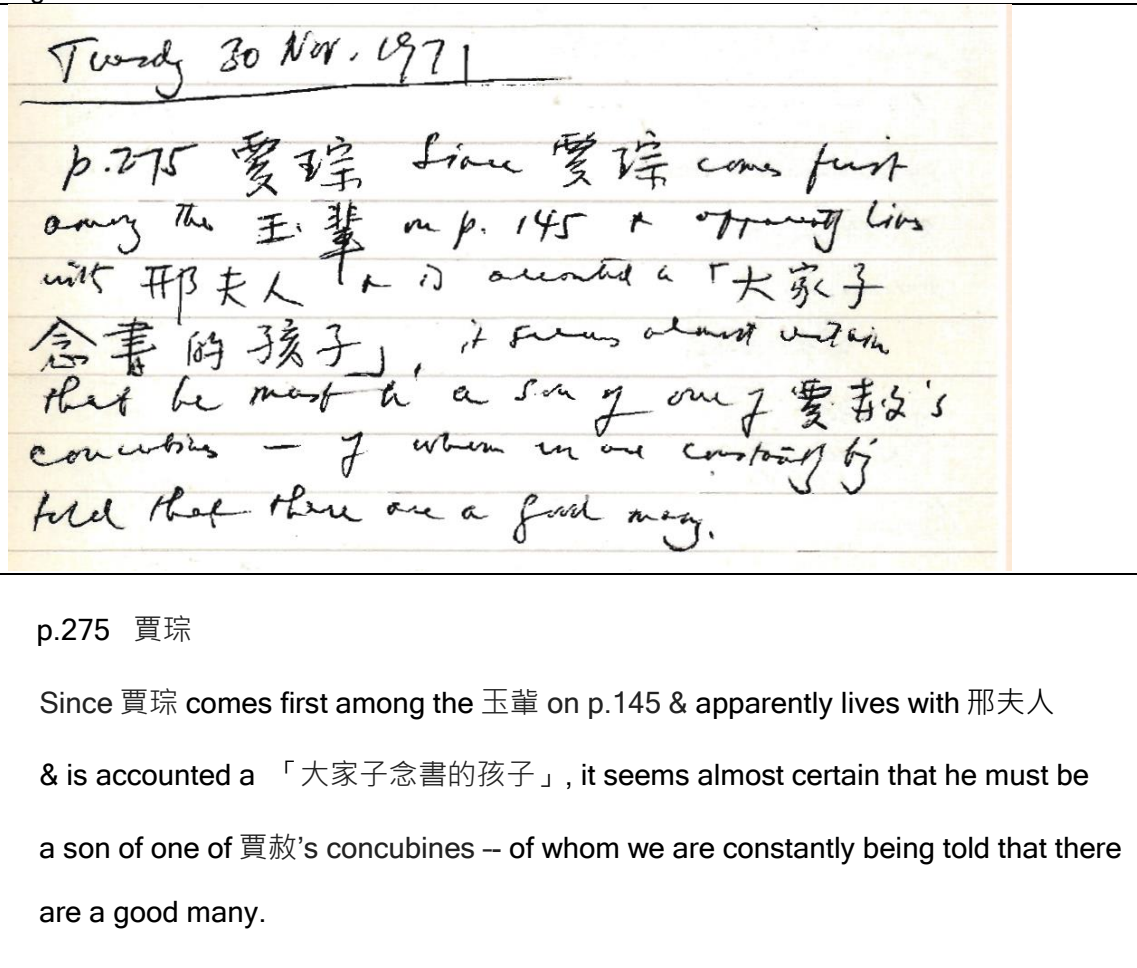 Tuesday 30 Nov. 1971
p.275 賈琮 Since 賈琮 comes first
among the 玉輩 on p. 145 & apparently lives
with 邢夫人 & is accounted a 「大家子
念書的孩子」, it seems almost certain
that he must be a son of one of 賈赦's
concubines — of whom we are constantly bg
told that there are a good many.
p.275 賈琮
Since 賈琮 comes first among the 玉輩 on p.145 & apparently lives with 邢夫人
& is accounted a 「大家子念書的孩子」, it seems almost certain that he must be
a son of one of 賈赦's concubines -- of whom we are constantly being told that there
are a good many.